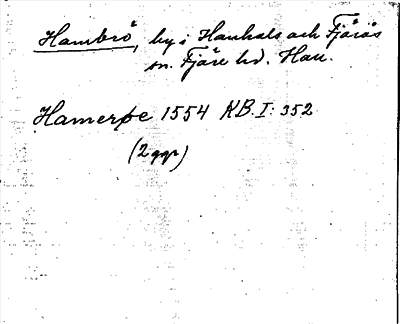 Hambrö, by i Hanhals och Fjärås
sn. Fjäre hd. Hall.
Hamerøe 1554 NB.I:352
(2 ggr)